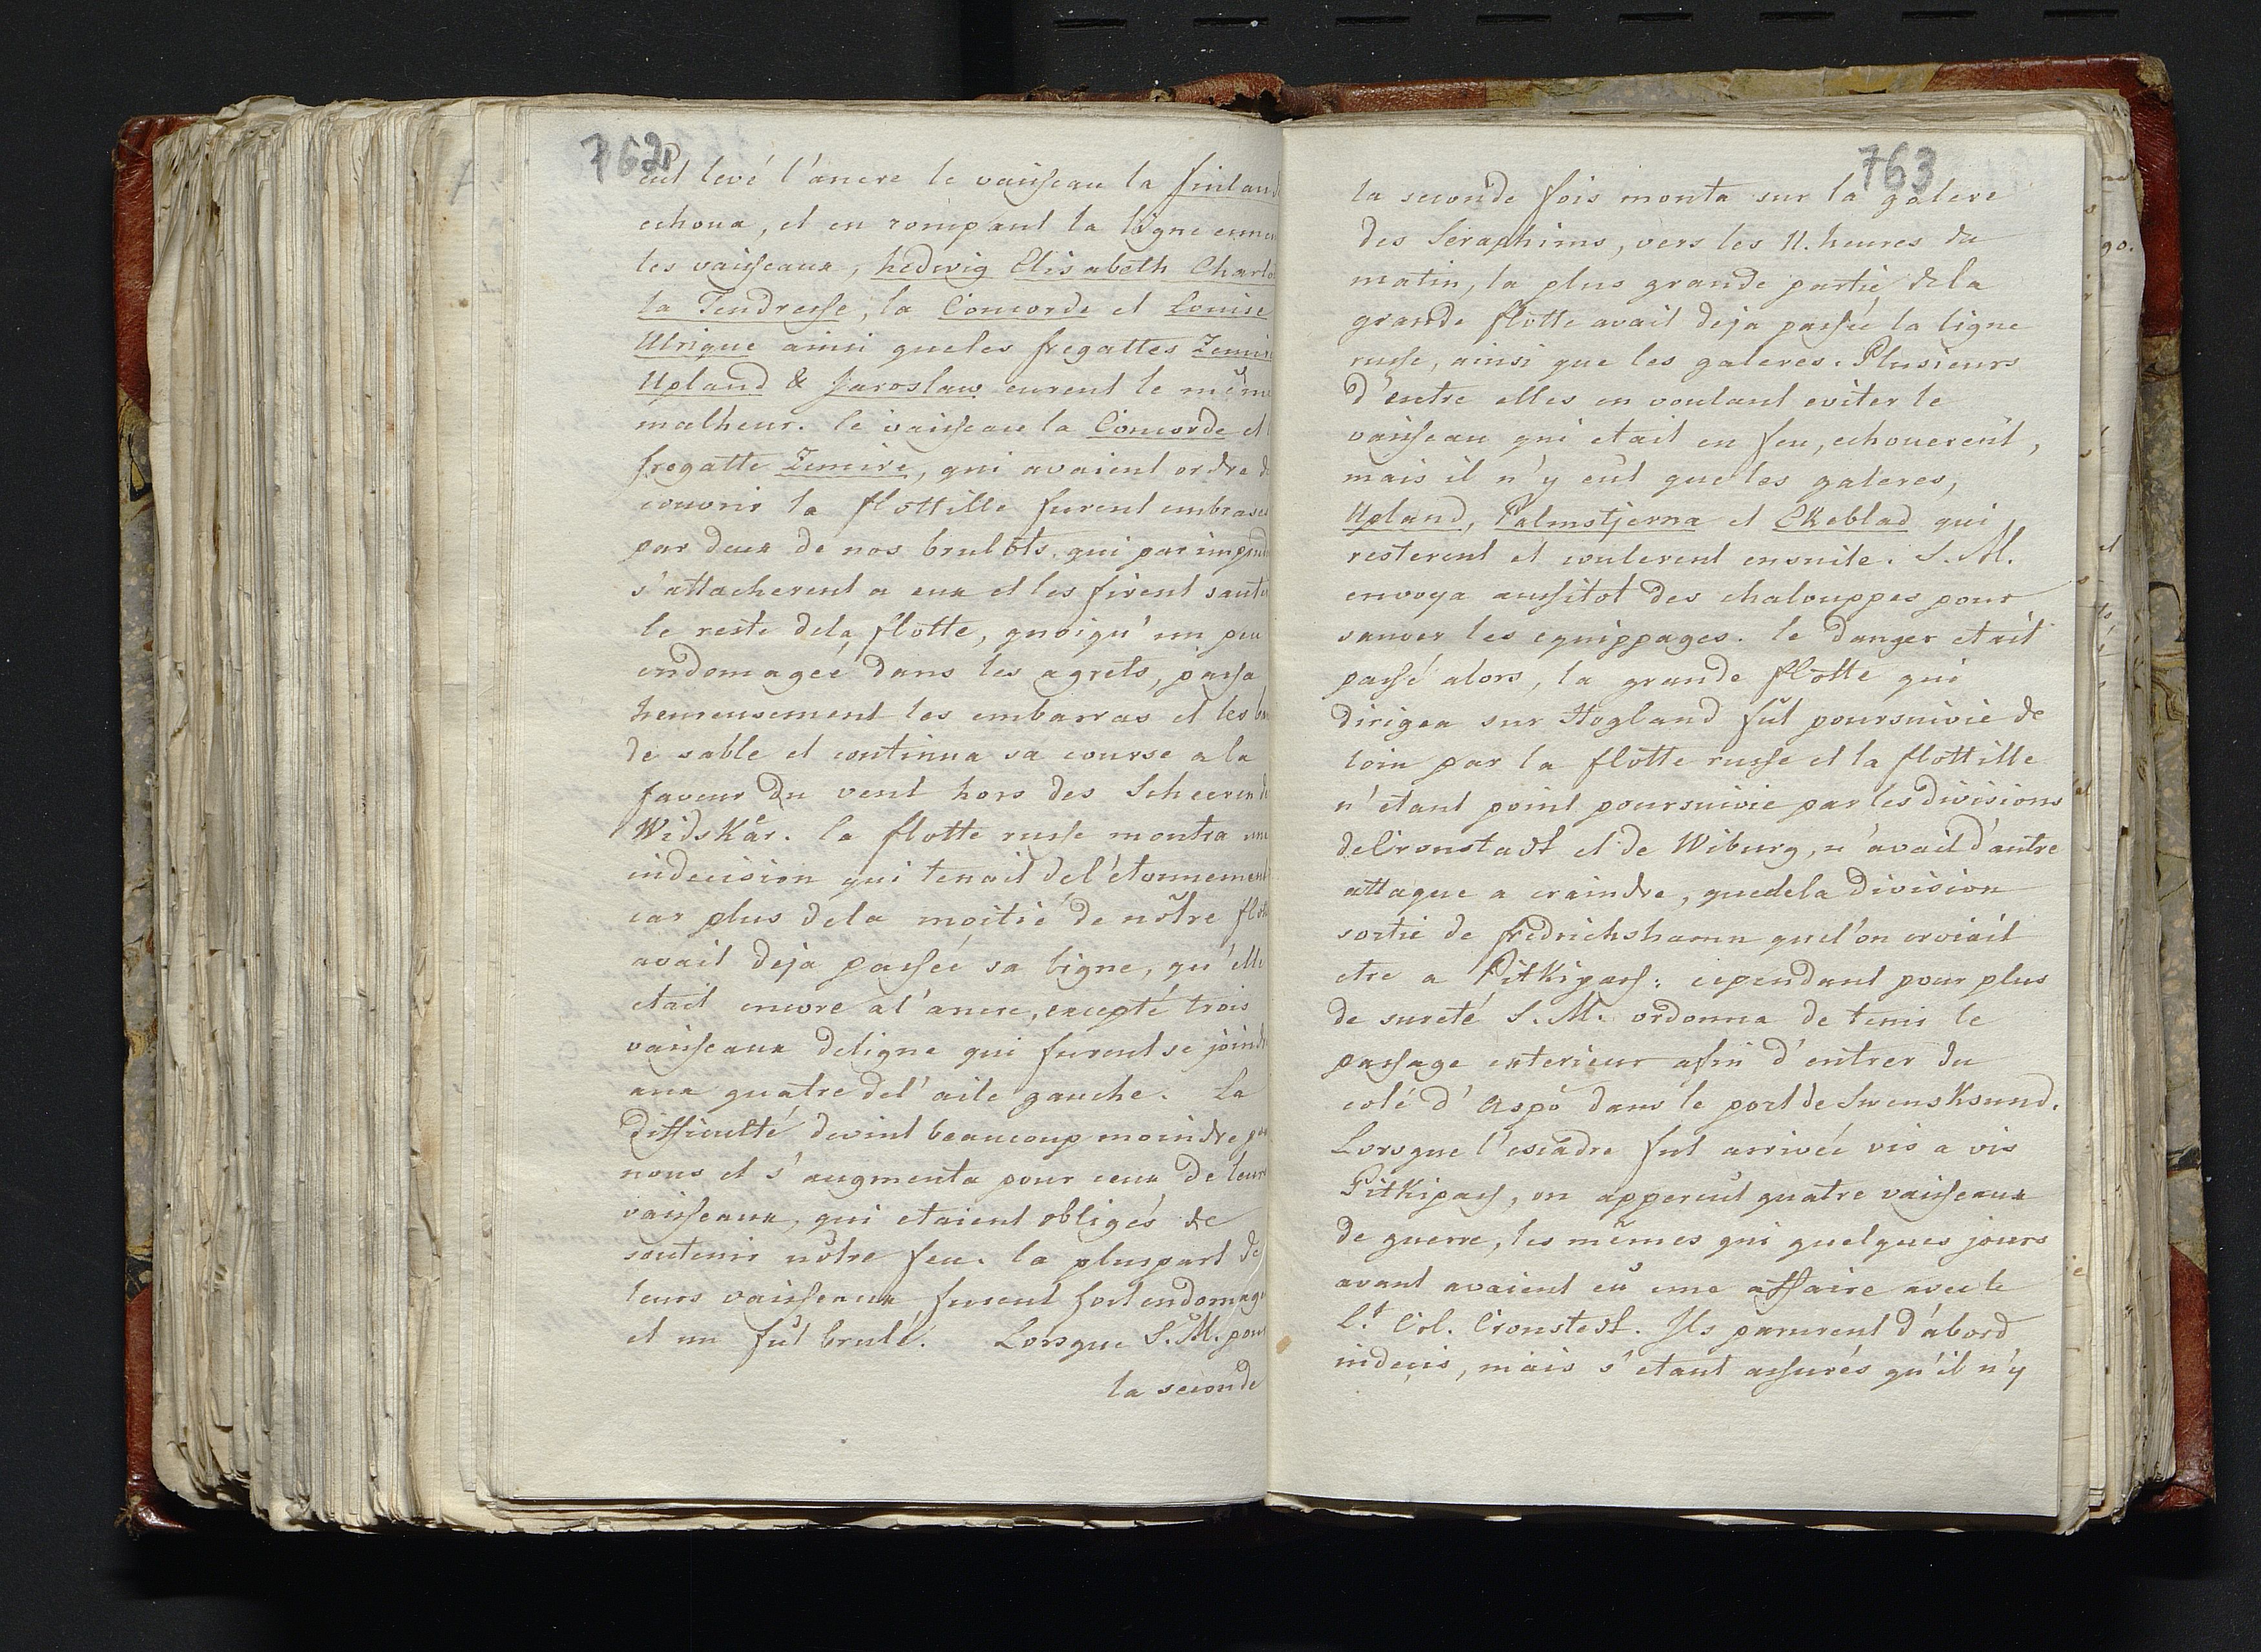 762
eut levé l'ancre le vaisseau la finland
echoua, et en rompant la ligne ennem
les vaisseaux, hedwig Elisabeth Charlo
la Tendresse, la Concorde et Louise
Ulrique ainsi queles fregattes Zemire
Upland & Jaroslaw eurent le même
malheur. le vaisseau la Concorde et l
fregatte Zemire, qui avaient ordre d
couvrir la flottille furent embrasé
par deux de nos brulots, qui par imprud
s'attacherent a eux et les firent saute
le reste dela flotte, quoiqu'un peu
endomageé dans les agrets, passa
heureusement les embarras et les ba
de sable et continua sa course a la
faveur du vent hors des Scheeren de
Widskär. la flotte russe montra une
indecision qui tenoit del'étonnement
car plus dela moitié de nôtre flott
avait deja passée sa ligne, qu'elle
etait encore a l'ancre, excepté trois
vaisseaux deligne qui furent se joindr
aux quatre del'aile gauche. La
difficulté devint beaucoup moindre po
nous et s'augmenta pour ceux de leurs
vaisseaux, qui etaient obligés de
soutenir nôtre feu. la pluspart de
leurs vaisseaux furent fort endomagé
et un fut brulé. Lorsque S. M. pour
la seconde
763
la seconde fois monta sur la galere
des Seraphims, vers les 11. heures du
matin, la plus grande partie de la
grande flotte avait deja passée la ligne
russe, ainsi que les galeres. Plusieurs
d'entre elles en voulant eviter le
vaisseau qui etait en feu, echouerent,
mais il n'y eut que les galeres,
Upland, Palmstjerna et Ekeblad qui
resterent et coulerent ensuite. S. M.
envoya aussitot des chalouppes pour
sauver les equippages. le danger etait
passé alors, la grande flotte qui
dirigea sur Hogland fut poursuivie de
loin par la flotte russe et la flottille
n'etant point poursuivie par les divisions
de Cronstadt et de Wiburg, n'avait d'autre
attaque a craindre, quedela division
sortie de fredrichshamn quel'on croiait
etre a Pitkipass: cependant pour plus
de sureté S. M. ordonna de tenir le
passage exterieur afin d'entrer du
coté d'Aspö dans le port de Swensksund.
Lorsque l'escadre fut arrivée vis a vis
Pitkipass, on apperçut quatre vaisseaux
de guerre, les mêmes qui quelques jours
avant avaient eû une affaire avec le
L.t Col. Cronstedt. Ils parurent d'abord
indecis, mais s'etant assurés qu'il n'y